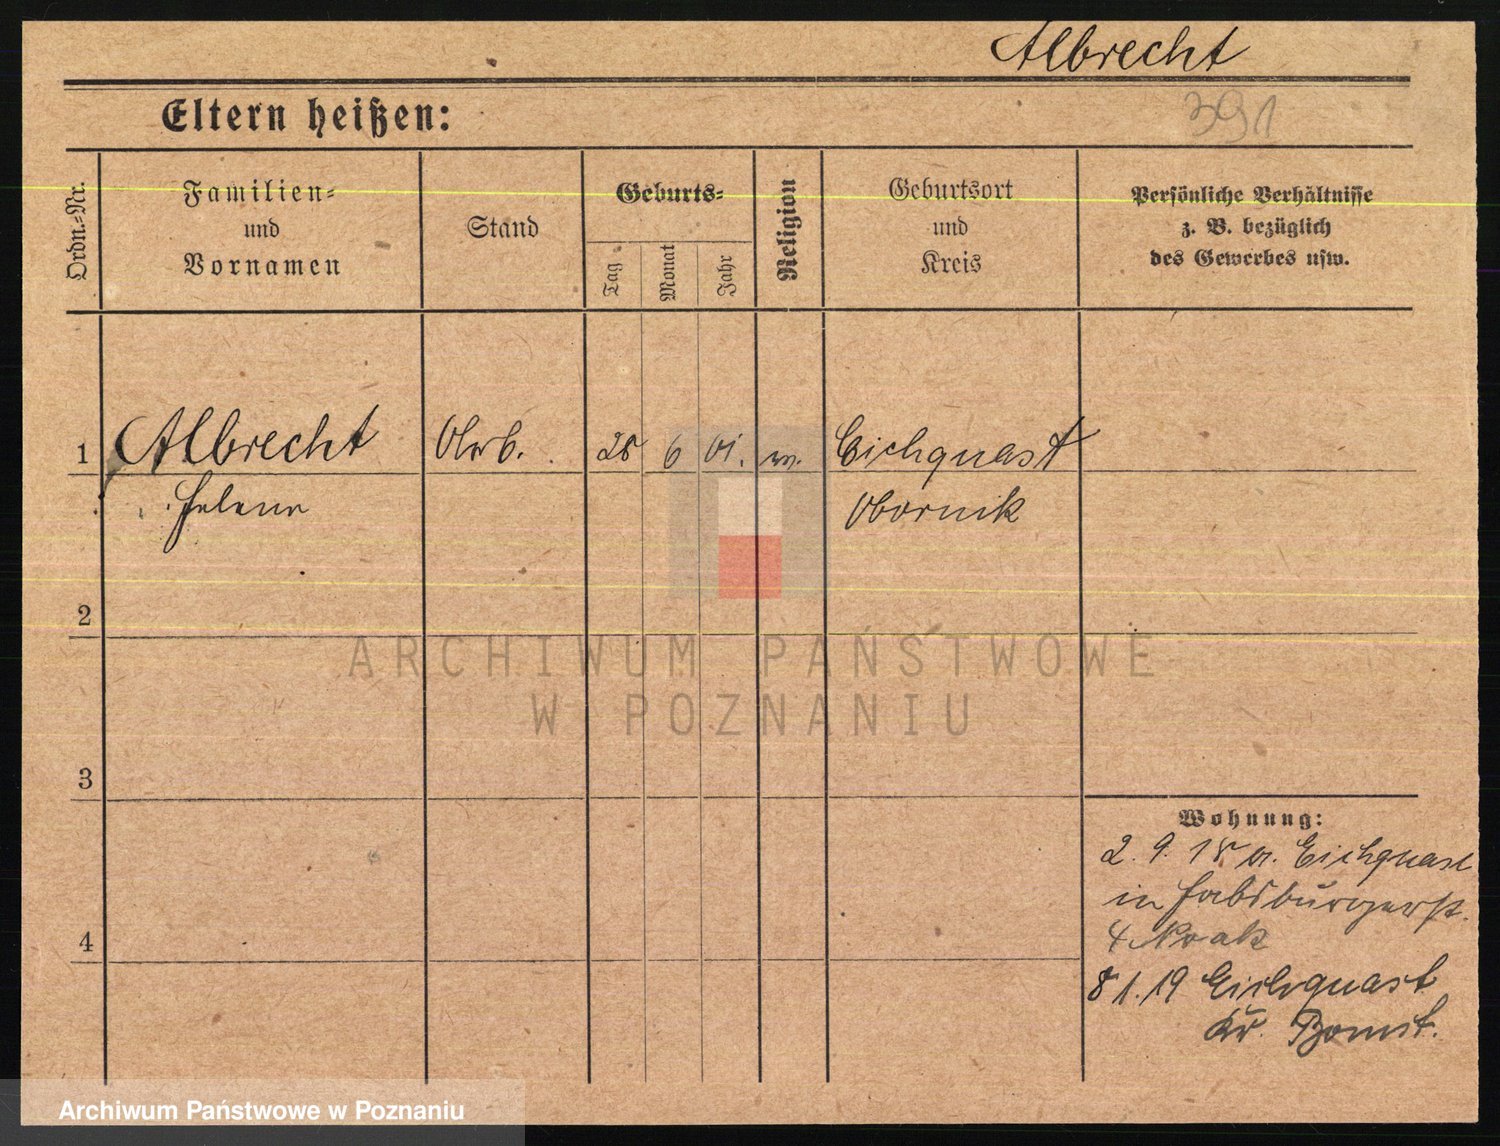 Albrecht
Eltern heißen:
391
Ordn.=Nr.
Familien=
und
Vornamen
Stand
Geburts=
Tag
Monat
Jahr
Religion
Geburtsort
und
Kreis
Persönliche Verhältnisse
z. B. bezüglich
des Gewerbes usw.
1
Albrecht
28 6 01.
Eichquast
Helene
Obornik
2
ARCHIWUM PAŃSTWOWE
W POZNANIU
3
Wohnung:
2. 9. 18 a. Eichquast
in Habsburgerst.
4 Noak
4
8 1. 19 Eichquast
Kr. Bomst.
Archiwum Państwowe w Poznaniu